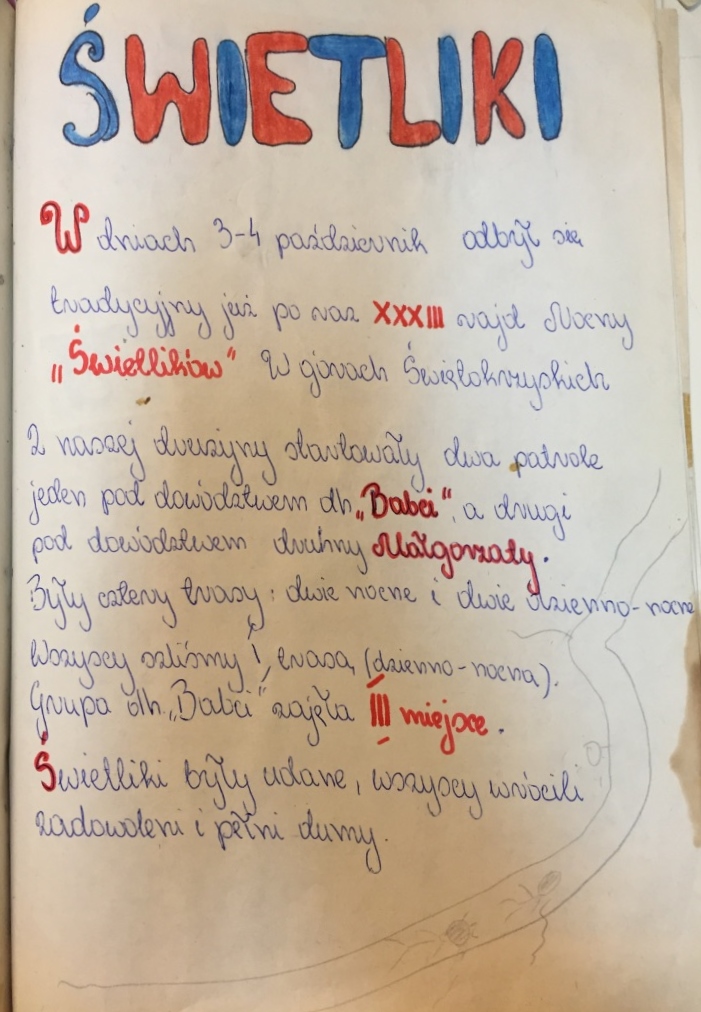 ŚWIETLIKI
W dniach 3-4 październik odbył się
tradycyjny już po raz XXXIII rajd Nocny
„Świetlików" W górach Świętokrzyskich
Z naszej drużyny startowały dwa patrole
jeden pod dowództwem dh „Babci", a drugi
pod dowództwem druhny Małgorzaty.
Były cztery trasy: dwie nocne i dwie dzienno-nocne
Wszyscy szliśmy I trasą (dzienno-nocna).
Grupa dh. „Babci" zajęła III miejsce.
Świetliki były udane, wszyscy wrócili
zadowoleni i pełni dumy.